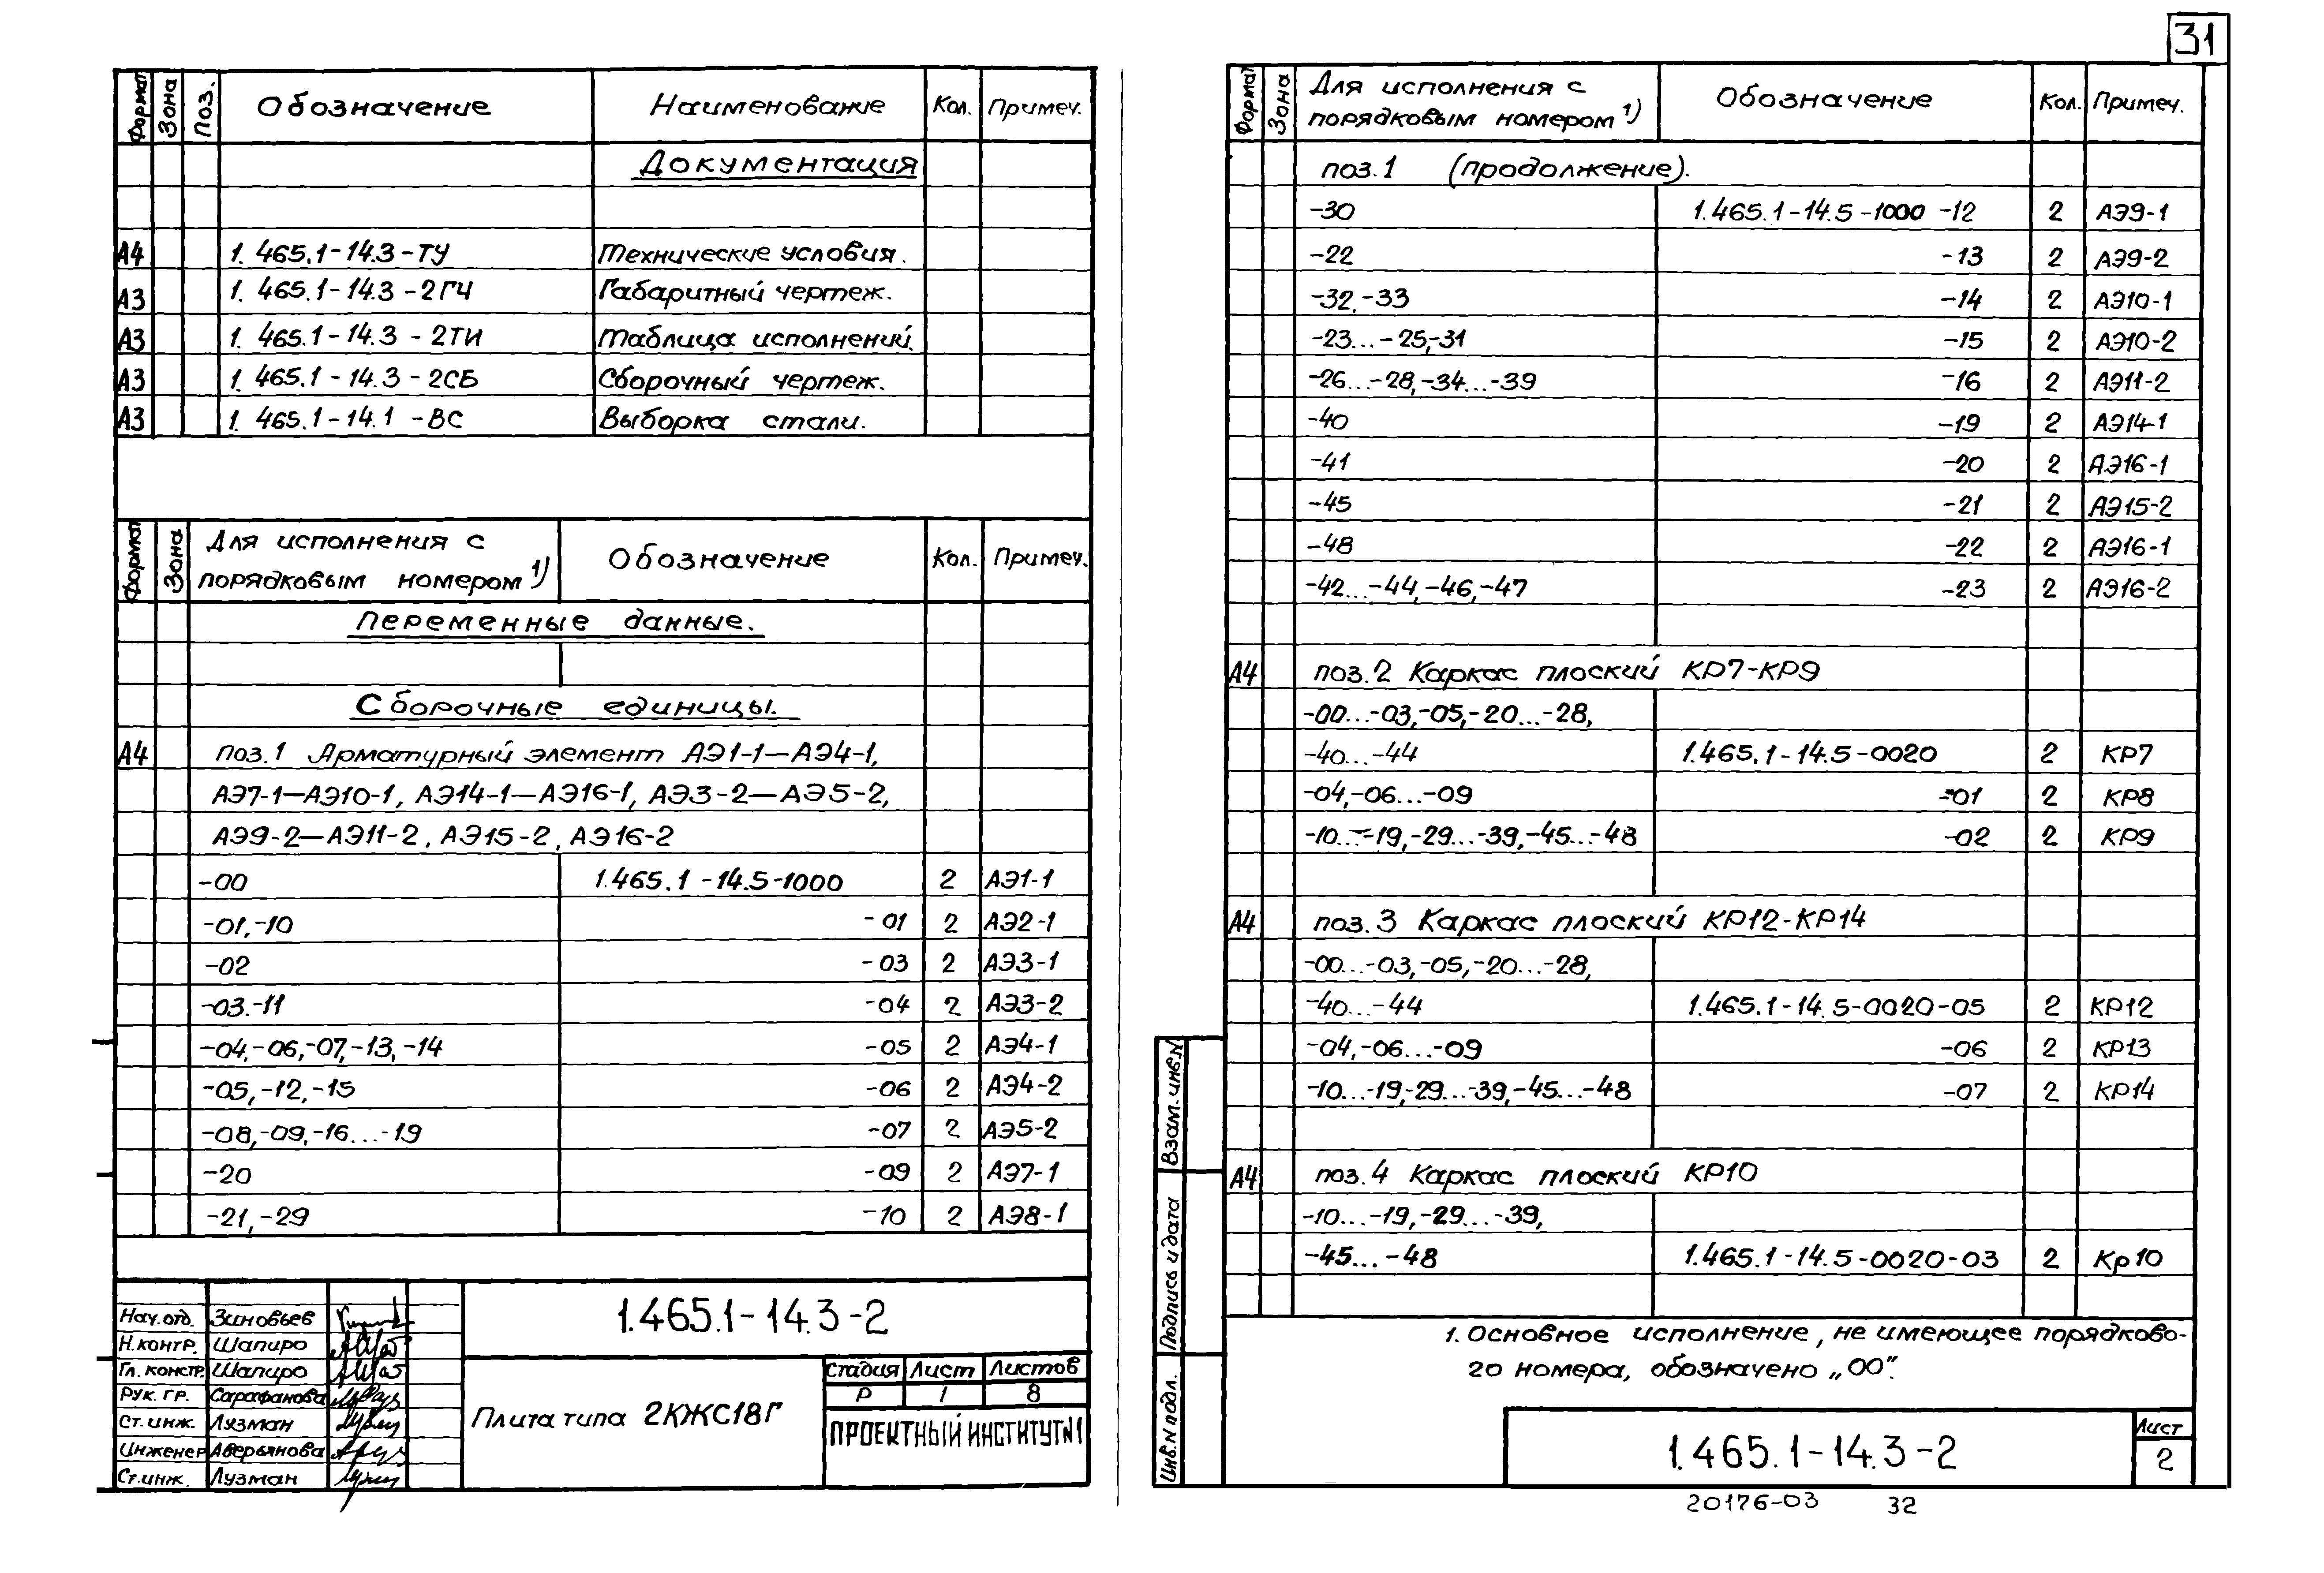 31
Формат Зона Поз. Обозначение Наименование Кол. Примеч.
Документация
А4 1.465.1-14.3-ТУ Технические условия.
А3 1.465.1-14.3-2ГЧ Габаритный чертеж.
А3 1.465.1-14.3-2ТИ Таблица исполнений.
А3 1.465.1-14.3-2СБ Сборочный чертеж.
А3 1.465.1-14.1-ВС Выборка стали.
Формат Зона Для исполнения с порядковым номером 1) Обозначение Кол. Примеч.
Переменные данные.
Сборочные единицы.
А4 поз.1 Арматурный элемент АЭ1-1—АЭ4-1,
АЭ7-1—АЭ10-1, АЭ14-1—АЭ16-1, АЭ3-2—АЭ5-2,
АЭ9-2—АЭ11-2, АЭ15-2, АЭ16-2
-00 1.465.1-14.5-1000 2 АЭ1-1
-01,-10 -01 2 АЭ2-1
-02 -03 2 АЭ3-1
-03.-11 -04 2 АЭ3-2
-04,-06,-07,-13,-14 -05 2 АЭ4-1
-05,-12,-15 -06 2 АЭ4-2
-08,-09,-16...-19 -07 2 АЭ5-2
-20 -09 2 АЭ7-1
-21,-29 -10 2 АЭ8-1
Нач.отд. Зиновьев
Н.контр. Шапиро
Гл. констр. Шапиро
Рук. гр. Сарафанова
Ст.инж. Лузман
Инженер Аверьянова
Ст.инж. Лузман
1.465.1-14.3-2
Плита типа 2КЖС18Г
Стадия Лист Листов
Р 1 8
ПРОЕКТНЫЙ ИНСТИТУТ №1
Формат Зона Для исполнения с порядковым номером 1) Обозначение Кол. Примеч.
поз.1 (продолжение).
-30 1.465.1-14.5-1000-12 2 АЭ9-1
-22 -13 2 АЭ9-2
-32,-33 -14 2 АЭ10-1
-23...-25,-31 -15 2 АЭ10-2
-26...-28,-34...-39 -16 2 АЭ11-2
-40 -19 2 АЭ14-1
-41 -20 2 АЭ16-1
-45 -21 2 АЭ15-2
-48 -22 2 АЭ16-1
-42...-44,-46,-47 -23 2 АЭ16-2
А4 поз.2 Каркас плоский КР7-КР9
-00...-03,-05,-20...-28,
-40...-44 1.465.1-14.5-0020 2 КР7
-04,-06...-09 -01 2 КР8
-10...-19,-29...-39,-45...-48 -02 2 КР9
А4 поз.3 Каркас плоский КР12-КР14
-00...-03,-05,-20...-28,
-40...-44 1.465.1-14.5-0020-05 2 КР12
-04,-06...-09 -06 2 КР13
-10...-19,-29...-39,-45...-48 -07 2 КР14
А4 поз.4 Каркас плоский КР10
-10...-19,-29...-39,
-45...-48 1.465.1-14.5-0020-03 2 Кр10
1. Основное исполнение, не имеющее порядково-
го номера, обозначено „00".
Взам. инв.№
Подпись и дата
Инв.N подл.
1.465.1-14.3-2
Лист
2
20176-03 32